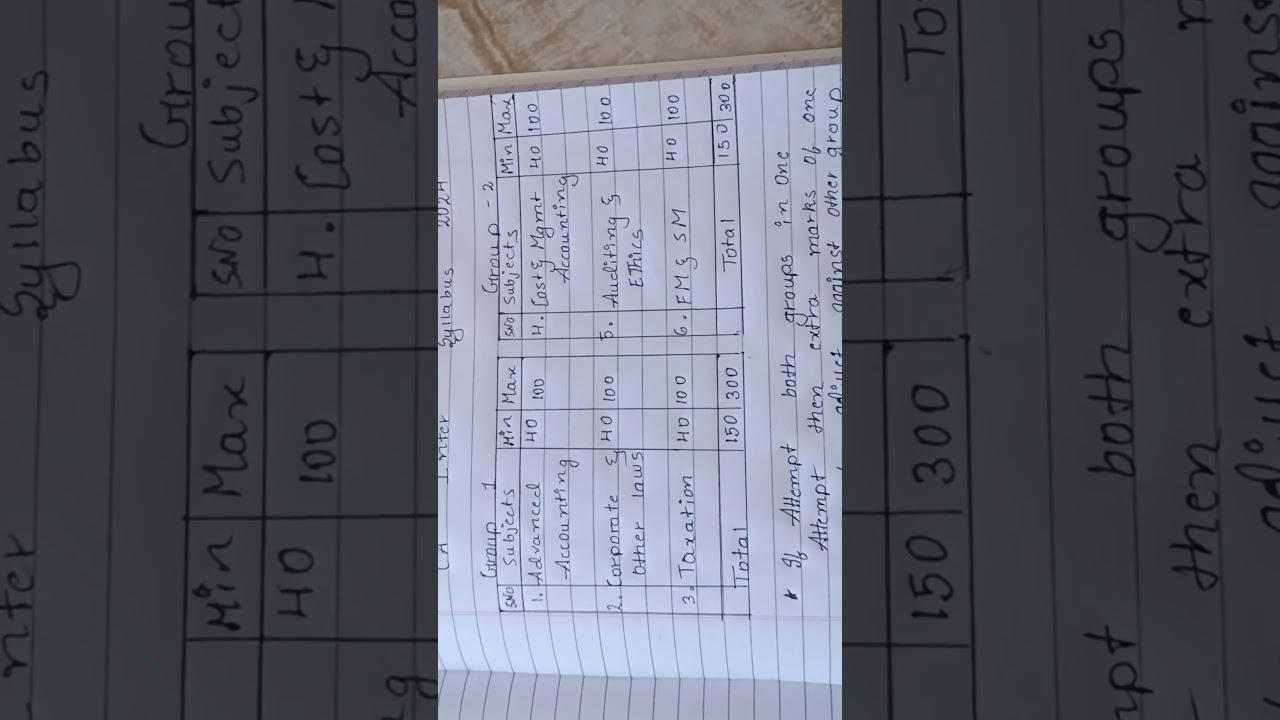 CA Inter Syllabus 2024
Group 1 Group - 2
SNO Subjects Min Max SNO Subjects Min Max
1. Advanced 40 100 4. Cost & Mgmt 40 100
Accounting Accounting
2. Corporate & 40 100 5. Auditing & 40 100
Other laws EThics
3. Taxation 40 100 6. FM & SM 40 100
Total 150 300 Total 150 300
* If Attempt both groups in one
Attempt then extra marks of one
adjust against other group